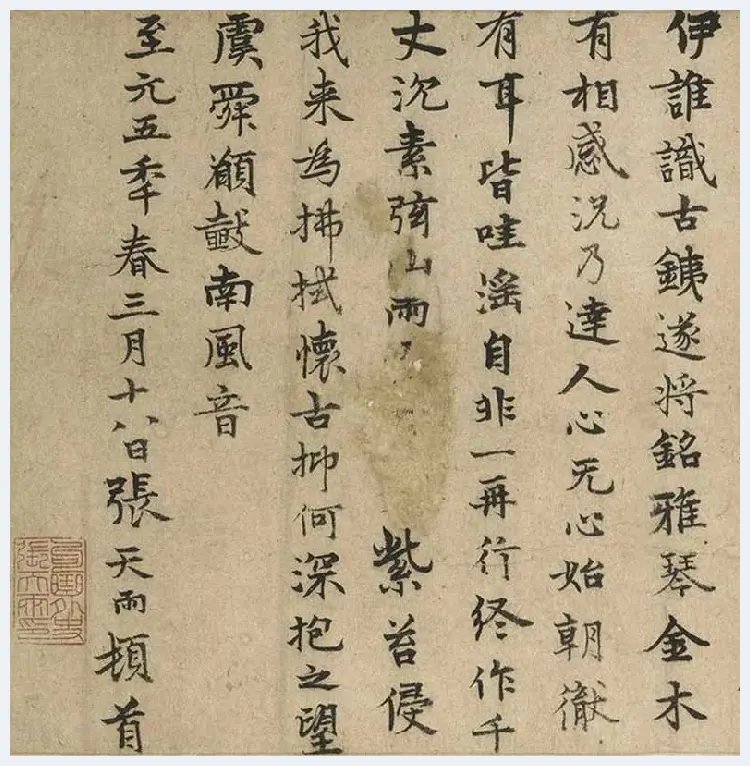 伊誰識古銕遂将銘雅琴金木
有相感況乃達人心无心始朝徹
有耳皆哇滛自非一再行終作千
丈沉素弦山雨 紫苔侵
我来為拂拭懷古抑何深抱之望
虞舜願鼓南風音
至元五年春三月十八日張天雨頓首